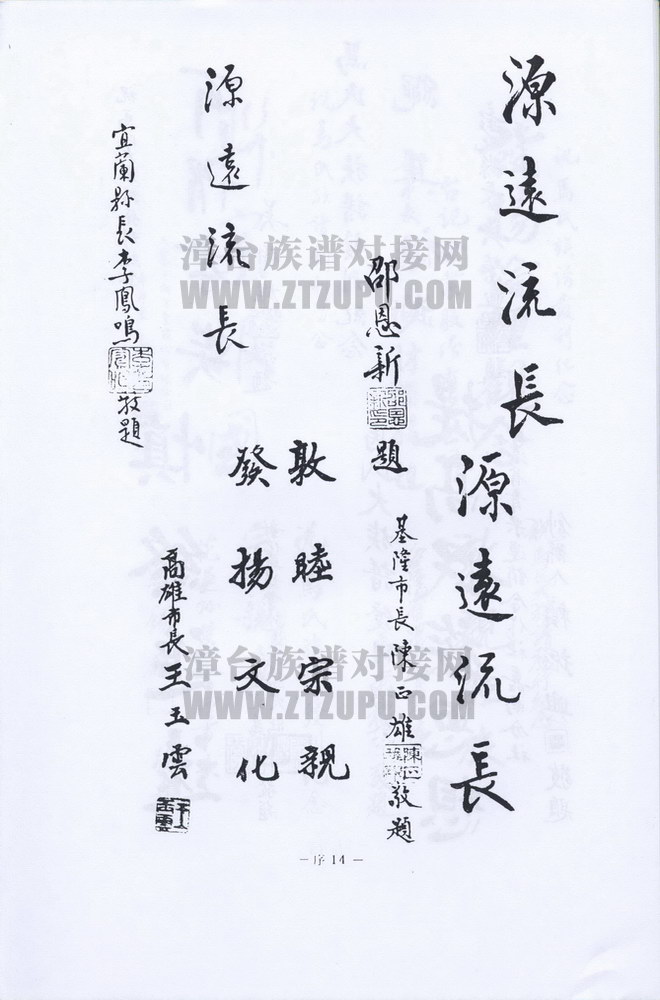 源遠流長
邵恩新
題
源遠流長
基隆市長陳正雄
敬題
源遠流長
宜蘭縣長李鳳鳴
敬題
敦睦宗親
發揚文化
高雄市長王玉雲
漳台族谱对接网
WWW.ZTZUPU.COM
漳台族谱对接网
WWW.ZTZUPU.COM
—序14—